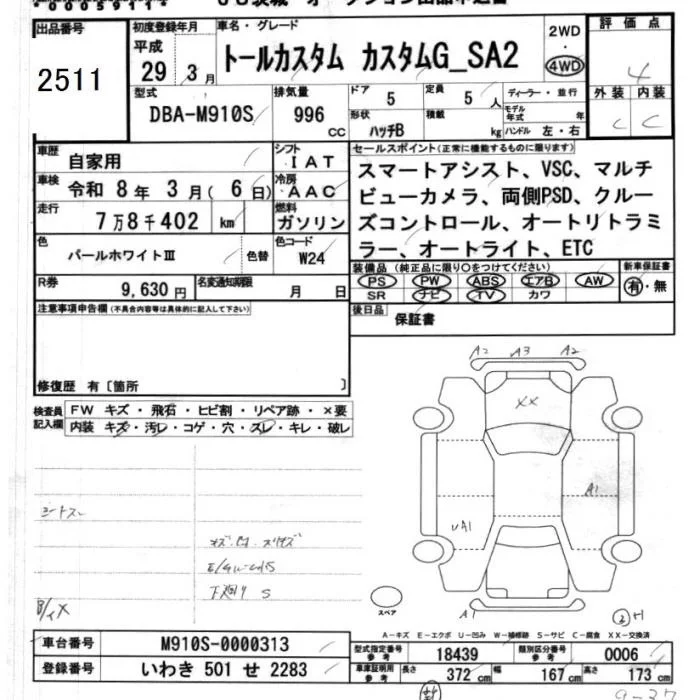 出品番号
2511
初度登録年月
平成
29 3月
車名・グレード
トールカスタム カスタムG_SA2
2WD
・
4WD
評価点
4
外装 内装
C C
型式
DBA-M910S
排気量
996
CC
ドア
5
定員
5人
形状
ハッチB
積載
kg
ディーラー・並行
モデル年式 年
ハンドル 左・右
車歴
自家用
シフト
IAT
車検
令和 8年 3月(6日)
冷房
AAC
走行
7万8千402 km
燃料
ガソリン
色
パールホワイトⅢ
色替
色コード
W24
R券
9,630円
名変通知期限
月 日
セールスポイント(正常に機能するものに限ります)
スマートアシスト、VSC、マルチ
ビューカメラ、両側PSD、クルー
ズコントロール、オートリトラミ
ラー、オートライト、ETC
装備品(純正品に限り○をつけてください)
新車保証書
PS PW ABS エアB AW
有・無
SR ナビ TV カワ
後日品
保証書
注意事項申告欄(不具合内容等は具体的に記入して下さい)
修復歴 有〔箇所 〕
検査員
記入欄
FW キズ・飛石・ヒビ割・リペア跡・×要
内装 キズ・汚レ・コゲ・穴・スレ・キレ・破レ
シートスレ
下廻り S
A2 A3 A2
XX
A1
UA1
A1
スペア
A-キズ E-エクボ U-凹み W-補修跡 S-サビ C-腐食 XX-交換済
車台番号
M910S-0000313
登録番号
いわき 501 せ 2283
型式指定番号
参考
18439
類別区分番号
参考
0006
車庫証明用
参考
長さ
372 cm
幅
167 cm
高さ
173 cm